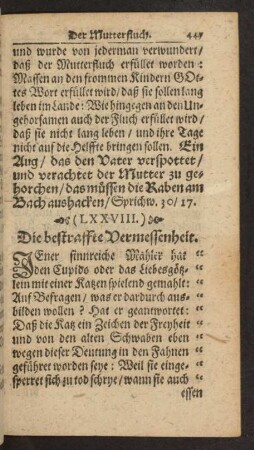 Der Mutterfluch. 447
und wurde von jederman verwundert/
daß der Mutterfluch erfüllet worden:
Massen an den frommen Kindern GOt-
tes Wort erfüllet wird/ daß sie sollen lang
leben im Lande: Wie hingegen an den Un-
gehorsamen auch der Fluch erfüllet wird/
daß sie nicht lang leben / und ihre Tage
nicht auf die Helffte bringen sollen. Ein
Aug/ das den Vater verspottet/
und verachtet der Mutter zu ge-
horchen/ das müssen die Raben am
Bach aushacken/ Sprichw. 30/17.
(LXXVIII.)
Die bestraffte Vermessenheit.
JEner sinnreiche Mahler hat "
den Cupido oder das Liebesgötz- "
lein mit einer Katzen spielend gemahlt: "
Auf Befragen/ was er dardurch aus- "
bilden wollen? Hat er geantwortet: "
Daß die Katz ein Zeichen der Freyheit "
und von den alten Schwaben eben "
wegen dieser Deutung in den Fahnen "
geführet worden seye: Weil sie einge- "
sperret sich zu tod schrye/ wann sie auch "
essen